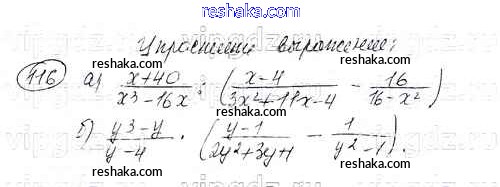 reshaka.com
Упростите выражение:
116 а) \frac{x+40}{x^3-16x} : \left( \frac{x-4}{3x^2+11x-4} - \frac{16}{16-x^2} \right)
reshaka.com reshaka.com
б) \frac{y^3-y}{y-4} \cdot \left( \frac{y-1}{2y^2+3y+1} - \frac{1}{y^2-1} \right).
reshaka.com reshaka.com